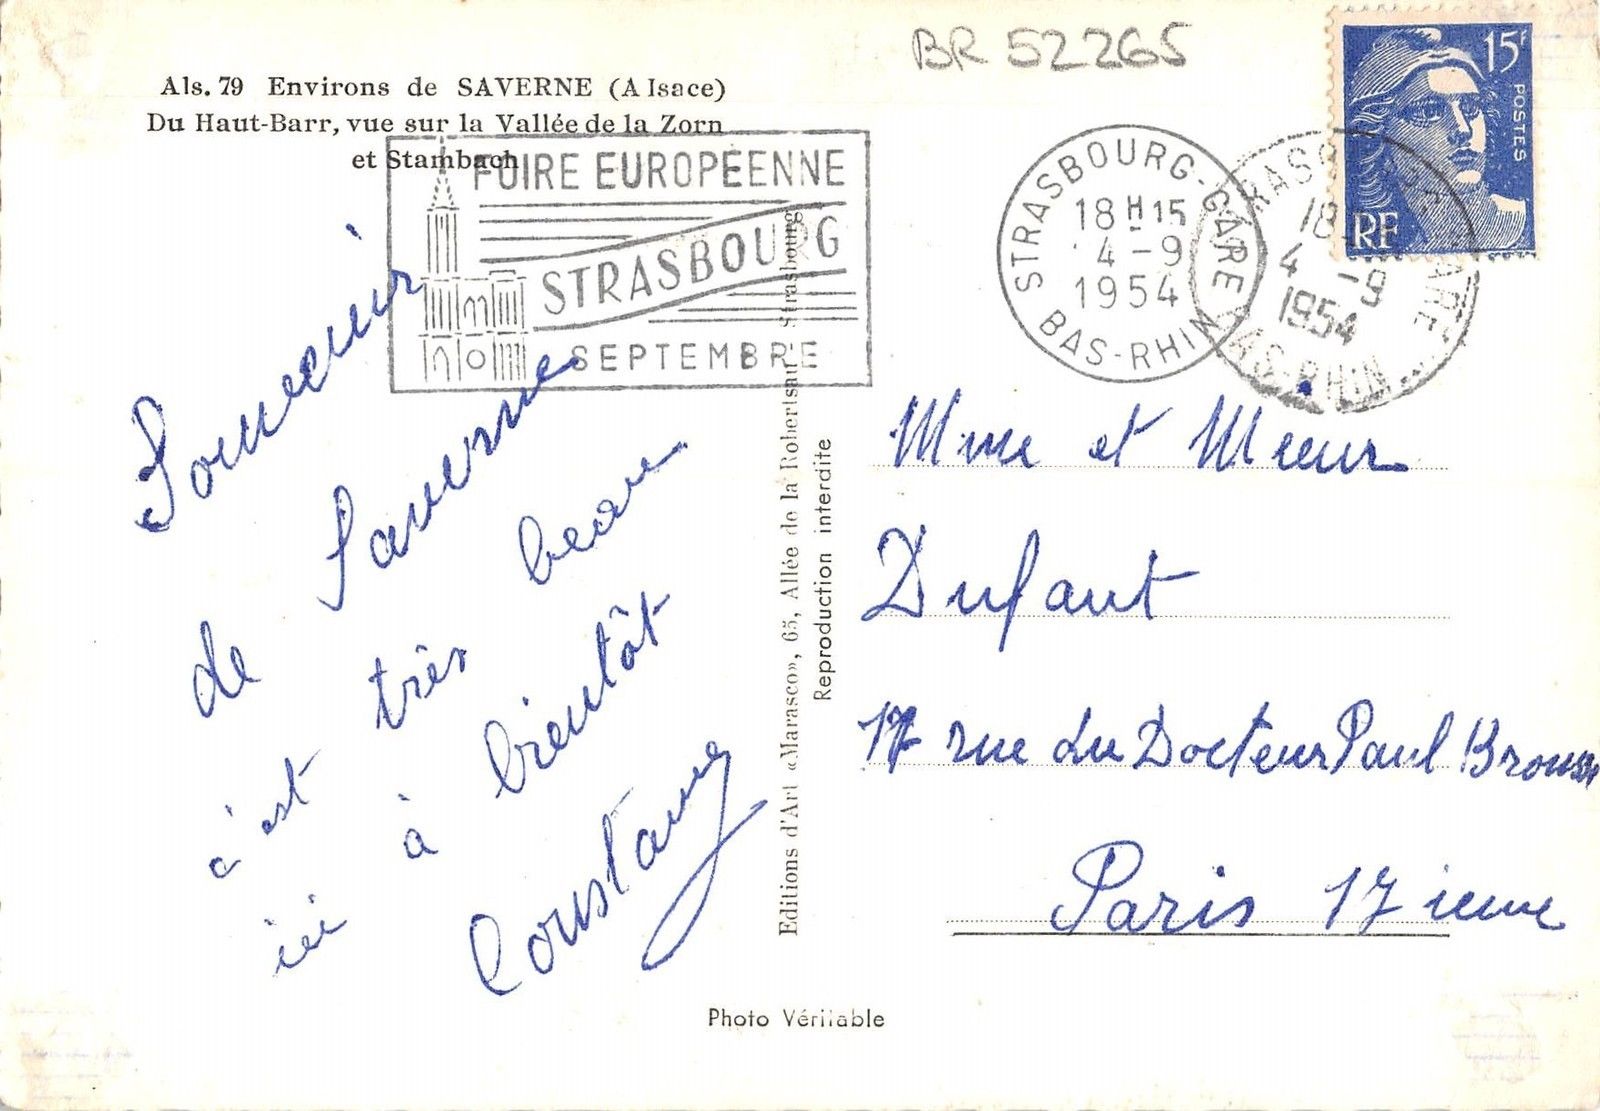 BR 52265
15F
POSTES
RF
Als. 79 Environs de SAVERNE (Alsace)
Du Haut-Barr, vue sur la Vallée de la Zorn
et Stambach
FOIRE EUROPÉENNE
STRASBOURG
SEPTEMBRE
STRASBOURG-GARE
18H15
4-9
1954
BAS-RHIN
18
4-9
1954
Souvenir
de Saverne
c'est très beau
ici à bientôt
Constant
Editions d'Art «Marasco», 65, Allée de la Robertsau - Strasbourg
Reproduction interdite
Mme et
Dufaut
17 rue du Docteur Paul Brousse
Paris 17 ieme
Photo Véritable